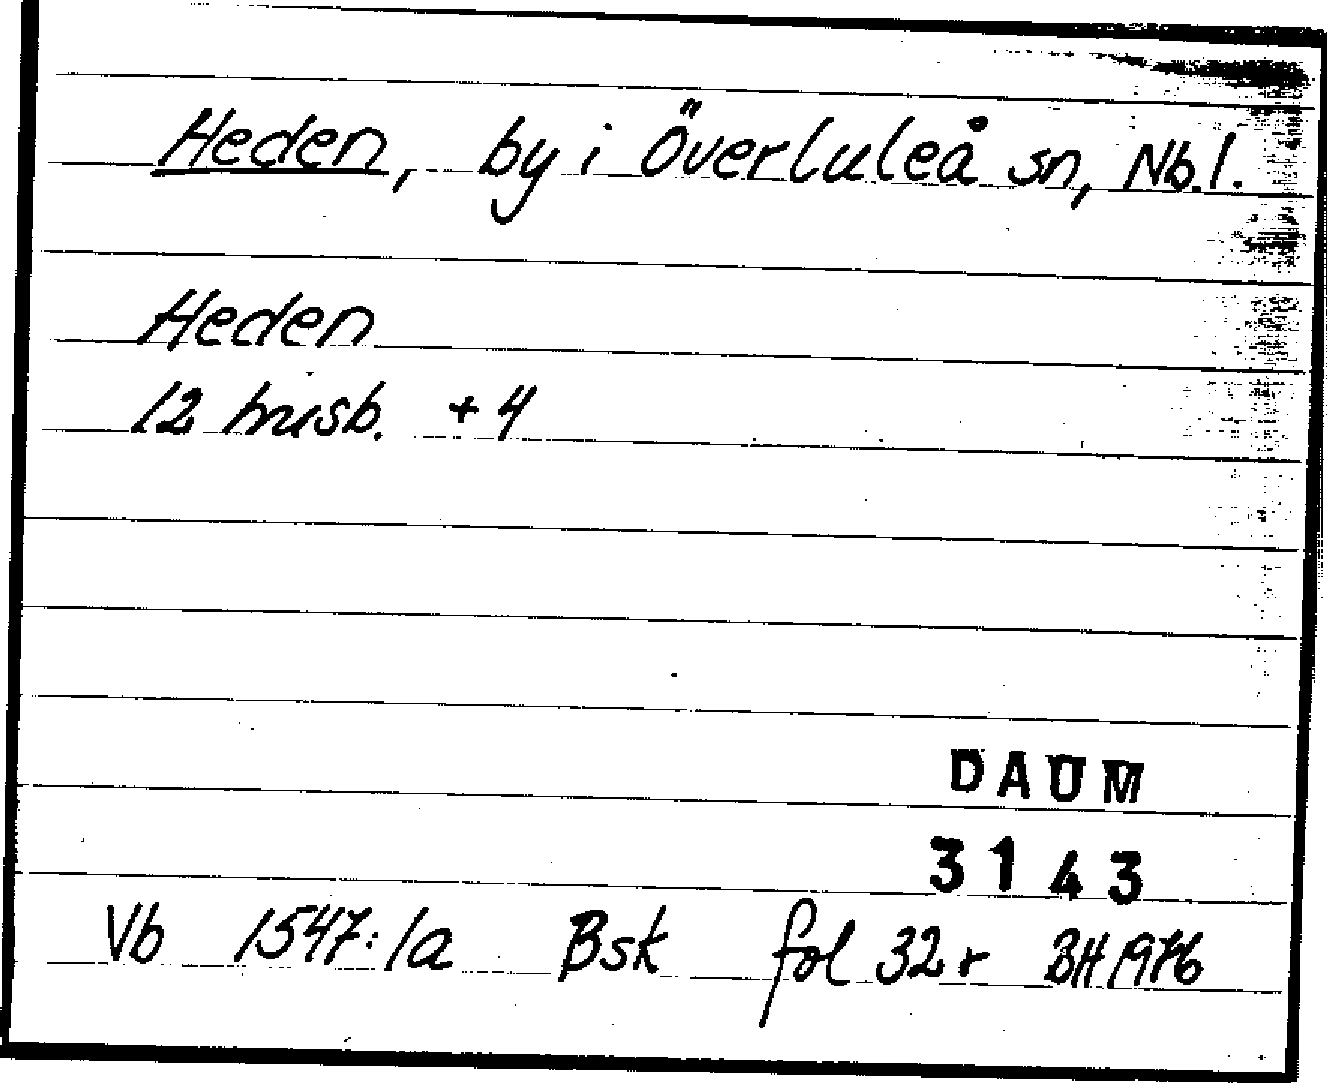 Heden, by i Överluleå sn, Nb.l.
Heden
12 husb. + 4
DAUM
3143
Vb 1547:1a Bsk fol 32r BH 1976